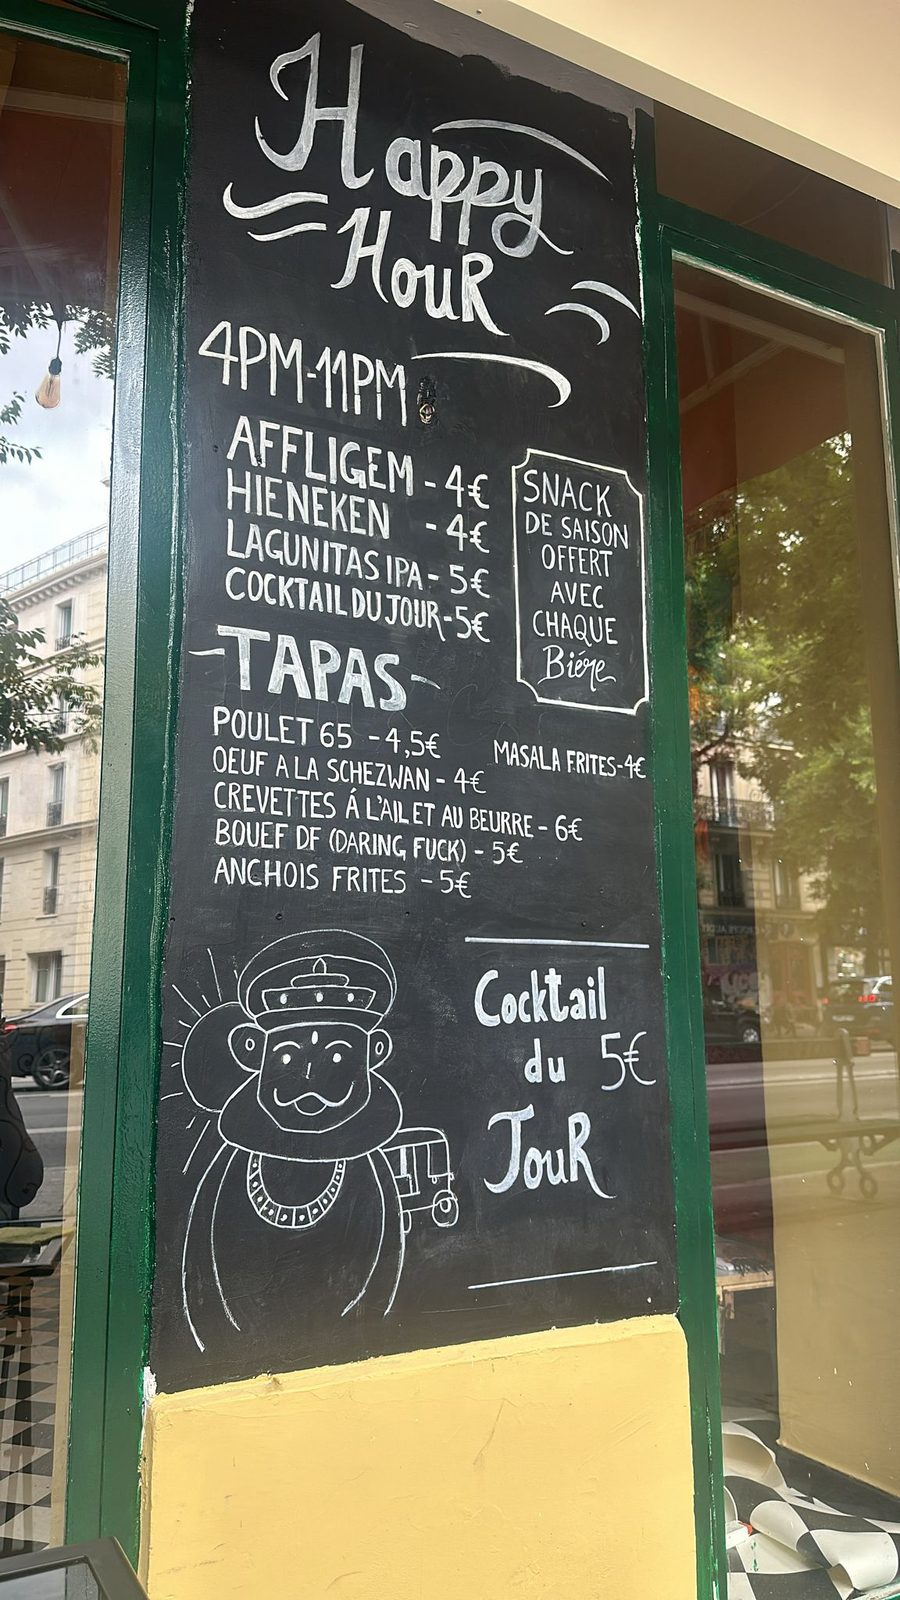 Happy
HouR
4PM-11PM
AFFLIGEM - 4€
HIENEKEN - 4€
LAGUNITAS IPA - 5€
COCKTAIL DU JOUR - 5€
SNACK
DE SAISON
OFFERT
AVEC
CHAQUE
Biére
TAPAS
POULET 65 - 4,5€
OEUF A LA SCHEZWAN - 4€
CREVETTES Á L'AIL ET AU BEURRE - 6€
BOUEF DF (DARING FUCK) - 5€
ANCHOIS FRITES - 5€
MASALA FRITES-4€
Cocktail
du 5€
JouR